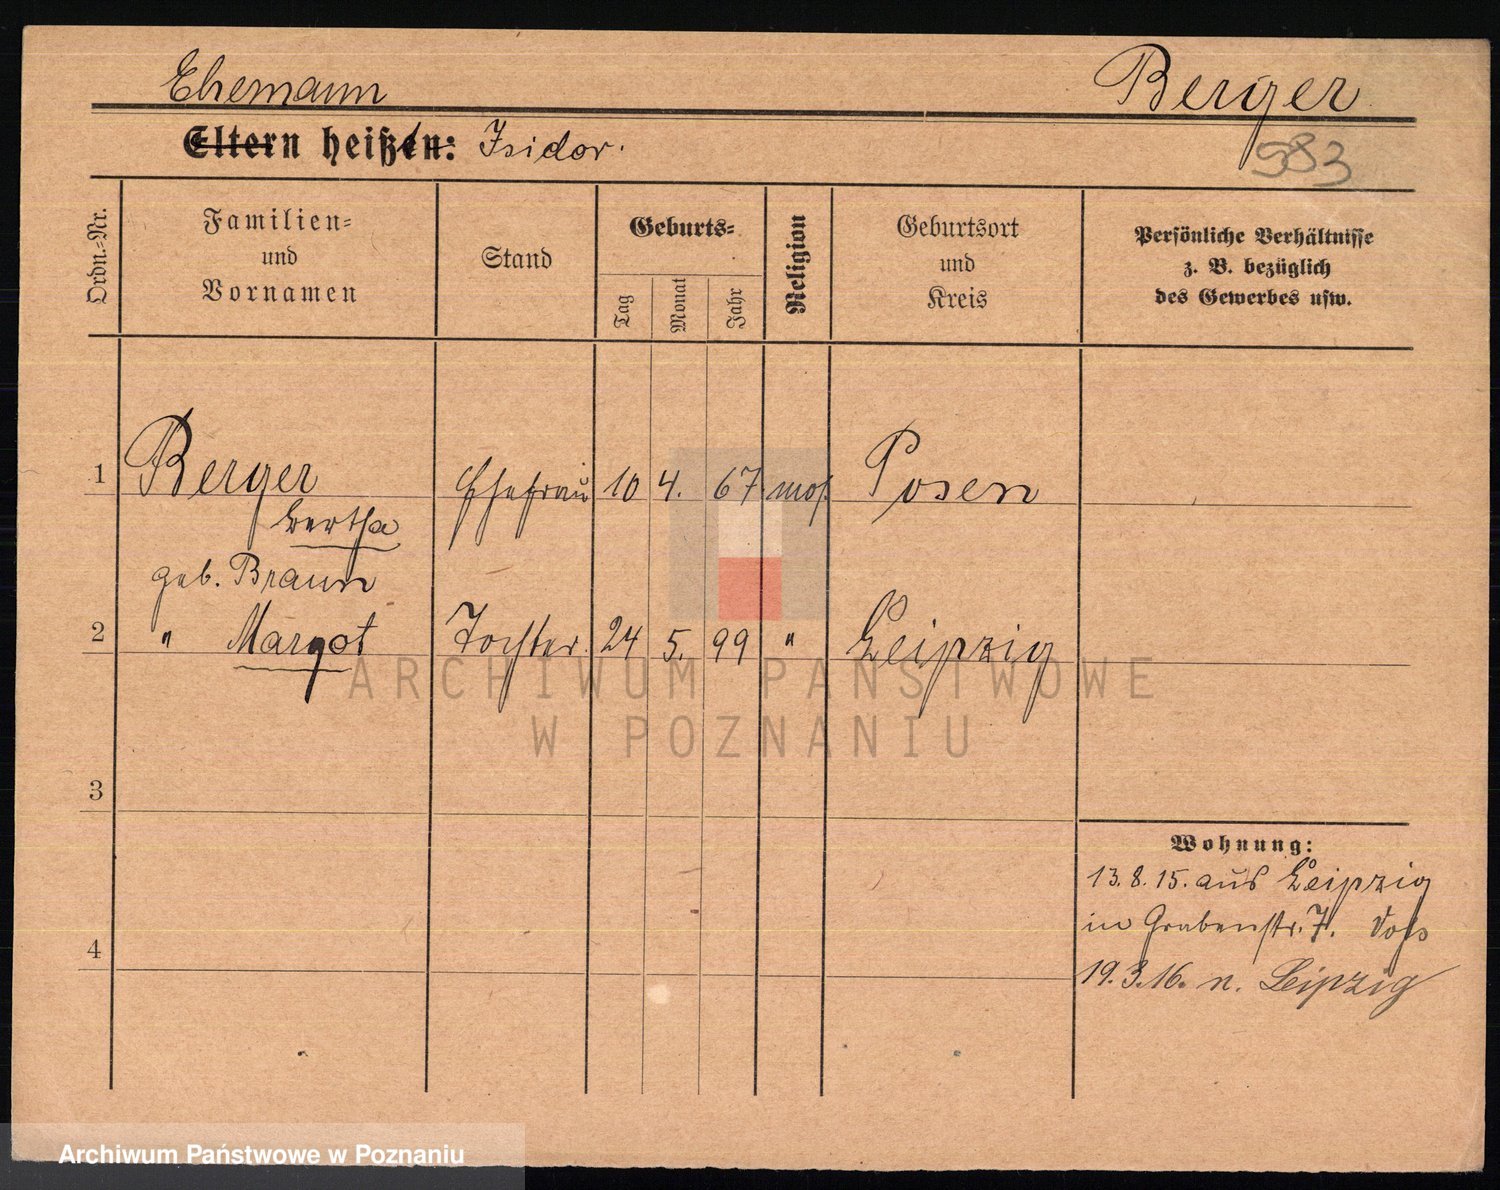 Ehemann Berger
Eltern heißen: Isidor. 983
Ordn.-Nr.
Familien- und Vornamen
Stand
Geburts-
Tag Monat Jahr
Religion
Geburtsort und Kreis
Persönliche Verhältnisse
z. B. bezüglich
des Gewerbes usw.
1 Berger Ehefrau 10 4. 67. mos. Posen
Bertha
geb. Braun
2 " Margot Tochter. 24 5. 99 " Leipzig
ARCHIWUM PAŃSTWOWE
W POZNANIU
3
Wohnung:
13. 8. 15. aus Leipzig
in Grabenstr. 7.
4
19. 3. 16. n. Leipzig
Archiwum Państwowe w Poznaniu